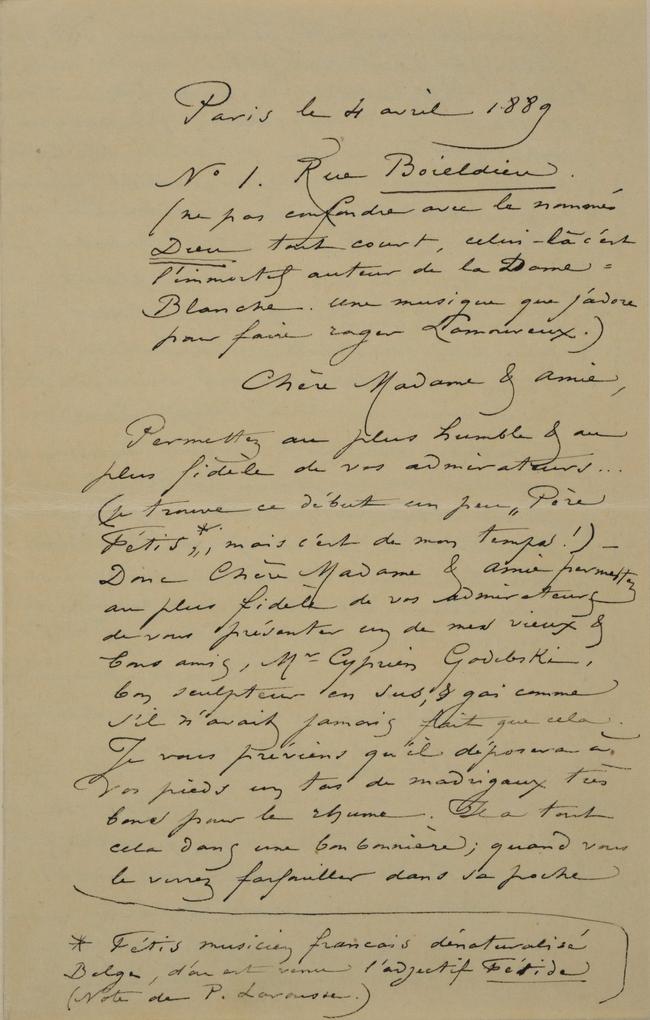 Paris le 4 avril 1889
No 1. Rue Boieldieu.
(ne pas confondre avec le nommé
Dieu tout court, celui-là c'est
l'immortel auteur de la Dame =
Blanche. une musique que j'adore
pour faire rager Lamoureux.)
Chère Madame & amie,
Permettez au plus humble & au
plus fidèle de vos admirateurs...
(je trouve ce début un peu „Père
Fétis*„, mais c'est de mon temps!) –
Donc Chère Madame & amie permettez
au plus fidèle de vos admirateurs
de vous présenter un de mes vieux &
bons amis, Mr Cyprien Godebski,
bon sculpteur en sus, & gai comme
s'il n'avait jamais fait que cela.
Je vous préviens qu'il déposera à
Vos pieds un tas de madrigaux très
bons pour le rhume. Il a tout
cela dans une bonbonnière; quand vous
le verrez farfouiller dans sa poche
* Fétis musicien francais dénaturalisé
Belge, d'où est venu l'adjectif Fétide
(Note de P. Larousse.)